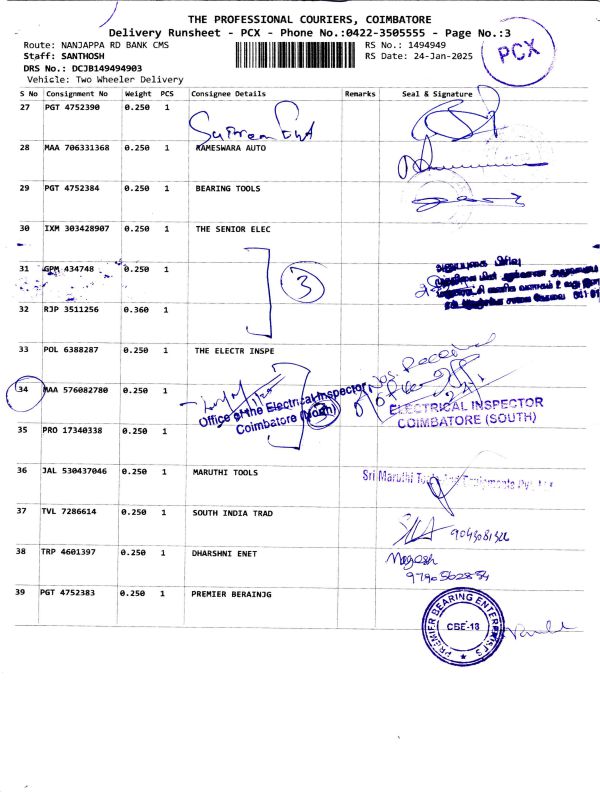 THE PROFESSIONAL COURIERS, COIMBATORE
Delivery Runsheet - PCX - Phone No.:0422-3505555 - Page No.:3
Route: NANJAPPA RD BANK CMS RS No.: 1494949
Staff: SANTHOSH RS Date: 24-Jan-2025
DRS No.: DCJB149494903
Vehicle: Two Wheeler Delivery
PCX
S No Consignment No Weight PCS Consignee Details Remarks Seal & Signature
27 PGT 4752390 0.250 1
28 MAA 706331368 0.250 1 RAMESWARA AUTO
29 PGT 4752384 0.250 1 BEARING TOOLS
30 IXM 303428907 0.250 1 THE SENIOR ELEC
31 GPM 434748 0.250 1
3
32 RJP 3511256 0.360 1
33 POL 6388287 0.250 1 THE ELECTR INSPE
34 MAA 576082780 0.250 1
Office of the Electrical Inspector,
Coimbatore (North)
ELECTRICAL INSPECTOR
COIMBATORE (SOUTH)
35 PRO 17340338 0.250 1
36 JAL 530437046 0.250 1 MARUTHI TOOLS
Sri Maruthi
37 TVL 7286614 0.250 1 SOUTH INDIA TRAD
38 TRP 4601397 0.250 1 DHARSHNI ENET
Nagesh
39 PGT 4752383 0.250 1 PREMIER BERAINJG
PREMIER BEARING ENTERPRISES
CBE-18